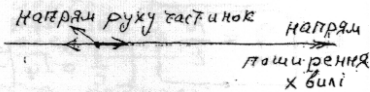 напрям руху частинок
напрям
поширення
хвилі